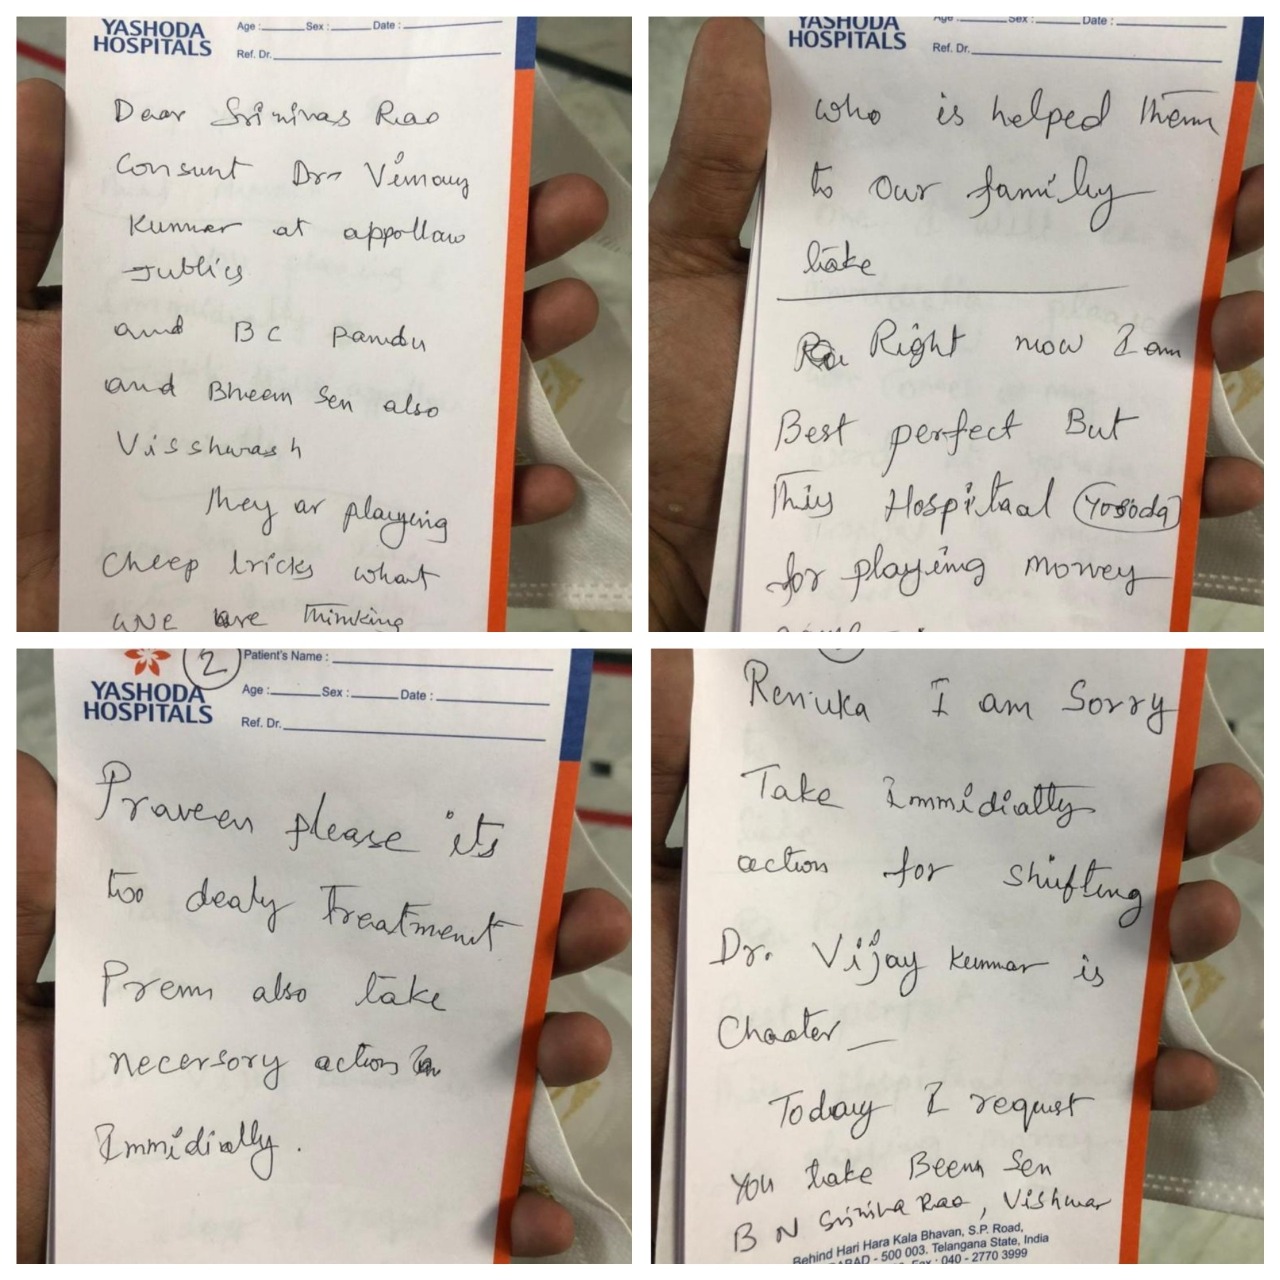 YASHODA
HOSPITALS
Age : Sex : Date :
Ref. Dr.
Dear Srinivas Rao
consunt Dr. Vimay
Kumar at appollaw
Jublies
and BC pandu
and Bheem Sen also
Visshwash
They ar playing
cheep tricks what
we are Thinking
YASHODA
HOSPITALS
Age : Sex : Date :
Ref. Dr.
who is helped them
to our family
take
Right now I am
Best perfect But
This Hospitaal (Yosoda)
for playing money
2
Patient's Name :
YASHODA
HOSPITALS
Age : Sex : Date :
Ref. Dr.
Praveen please its
too dealy Treatment
Prem also take
necersory action
Immidially.
Renuka I am Sorry
Take Immidially
action for shifting
Dr. Vijay Kumar is
Chaater
Today I requst
You take Beem Sen
B N Sriniva Rao, Vishwar
Behind Hari Hara Kala Bhavan, S.P. Road,
- 500 003. Telangana State, India
: 040 - 2770 3999